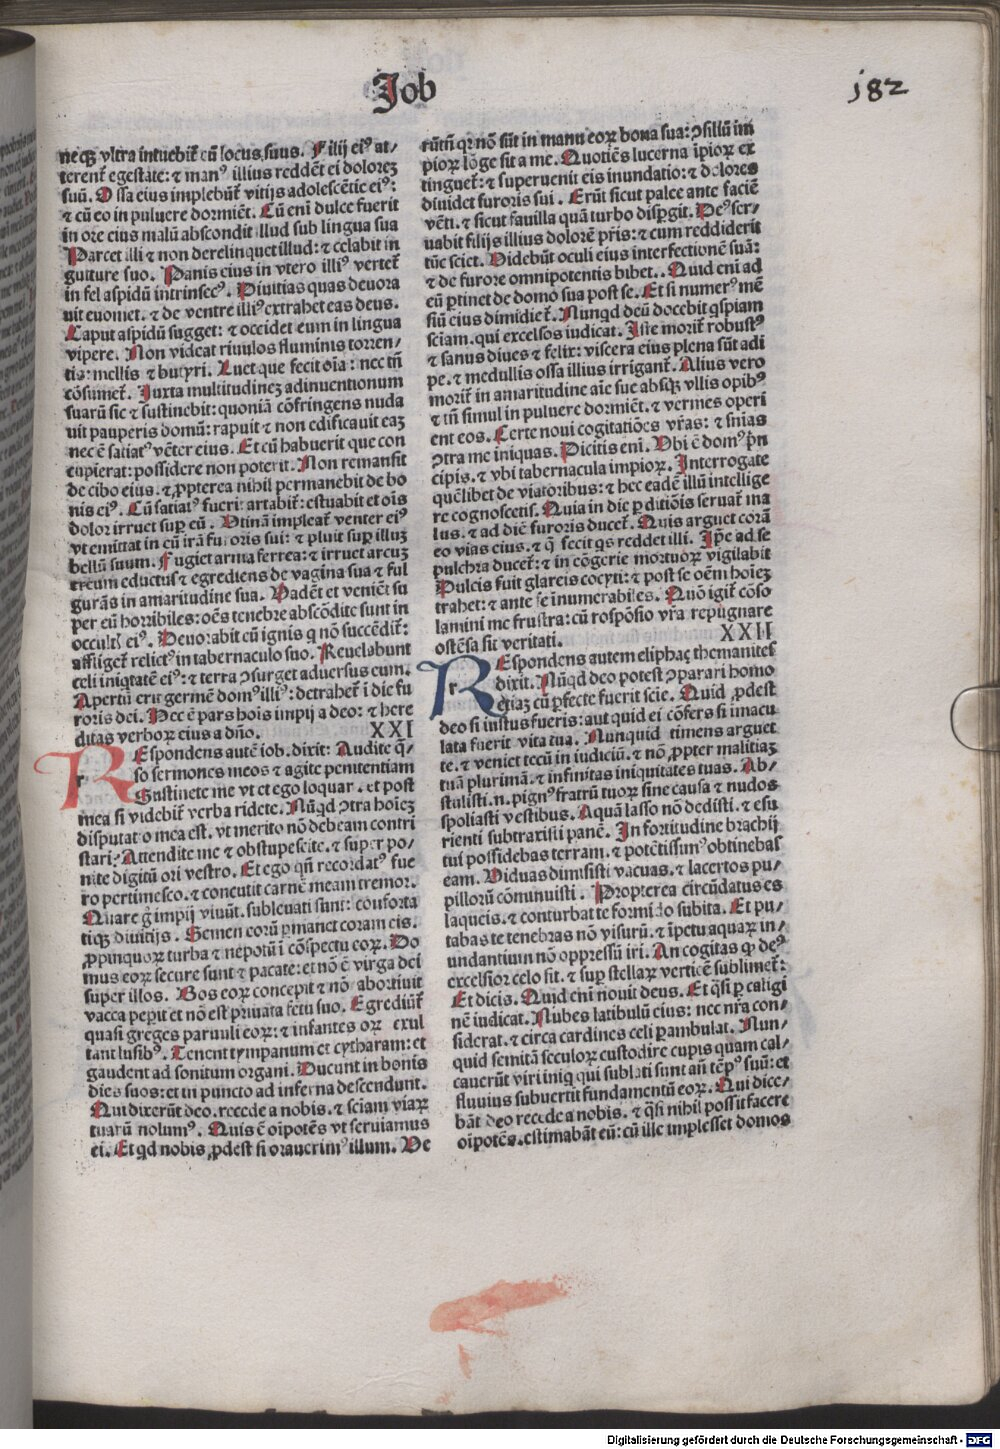 Job
182
neq vltra intuebit̃ cũ locus suus. Filij ei⁹ at-
terent̃ egestate: ⁊ man⁹ illius reddẽt ei dolorez
suũ. Ossa eius implebũt̃ vitijs adolescẽtie ei⁹:
⁊ cũ eo in puluere dormiẽt. Cũ enĩ dulce fuerit
in ore eius malũ abscondit illud sub lingua sua
Parcet illi ⁊ non derelinquet illud: ⁊ celabit in
gutture suo. Panis eius in vtero illi⁹ vertet̃
in fel aspidũ intrinsec⁹. Diuitias quas deuora
uit euomet. ⁊ de ventre illi⁹ extrahet eas deus.
Caput aspidũ sugget: ⁊ occidet eum in lingua
vipere. Non videat riuulos fluminis torren-
tis: mellis ⁊ butyri. Luet que fecit oĩa: nec tñ
cõsumet̃. Juxta multitudinez adinuentionum
suarũ sic ⁊ sustinebit: quoniã cõfringens nuda
uit pauperis domũ: rapuit ⁊ non edificauit eaz
nec ẽ satiat⁹ vẽter eius. Et cũ habuerit que con
cupierat: possidere non poterit. Non remansit
de cibo eius. ⁊ ꝓpterea nihil permanebit de bo
nis ei⁹. Cũ satiat⁹ fuerit artabit̃: estuabit et oĩs
dolor irruet suꝑ eũ. Vtinã impleat̃ venter ei⁹
vt emittat in eũ irã furoris sui: ⁊ pluit suꝑ illuz
bellũ suum. Fugiet arma ferrea: ⁊ irruet arcuz
ereum eductus ⁊ egrediens de vagina sua ⁊ ful
gurãs in amaritudine sua. Vadẽt et veniẽt su
per eũ horribiles: oẽs tenebre abscõdite sunt in
occultis ei⁹. Deuorabit eũ ignis q nõ succẽdit̃:
affliget̃ relict⁹ in tabernaculo suo. Reuelabunt
celi iniqtatẽ ei⁹: ⁊ terra ↄsurget aduersus eum.
Apertũ erit germẽ dom⁹ illi⁹: detrahet̃ ĩ die fu
roris dei. Hec ẽ pars hoĩs impij a deo: ⁊ here
ditas verboꝝ eius a dño. XXI
REspondens autẽ iob. dixit: Audite q̃-
so sermones meos ⁊ agite penitentiam
Sustinete me vt et ego loquar. et post
mea si videbit̃ verba ridete. Nũqd ↄtra hoiez
disputatio mea est. vt merito nõ debeam contri
stari: Attendite me ⁊ obstupescite. ⁊ super po-
nite digitũ ori vestro. Et ego qñ recordat⁹ fue
ro pertimesco. ⁊ concutit carnẽ meam tremor.
Quare g̃ impij viuũt. subleuati sunt: conforta
tiqz diuitijs. Semen eorũ ꝑmanet coram eis.
ꝓpinquoꝝ turba ⁊ nepotũ ĩ cõspectu eoꝝ. Do
mus eoꝝ secure sunt ⁊ pacate: et nõ ẽ virga dei
super illos. Bos eoꝝ concepit ⁊ nõ abortiuit
vacca peꝑit et nõ est priuata fetu suo. Egrediũt̃
quasi greges paruuli eoꝝ: ⁊ infantes oꝝ exul
tant lusib⁹. Tenent tympanum et cytharam: et
gaudent ad sonitum organi. Ducunt in bonis
dies suos: et in puncto ad inferna descendunt.
Qui dixerũt deo. recede a nobis. ⁊ sciam viaꝝ
tuarũ nolum⁹. Quis ẽ oĩpotẽs vt seruiamus
ei. Et qd nobis ꝓdest si orauerim⁹ illum. Ve
rũtñ qꝛ nõ sũt in manu eoꝝ bona sua: ↄsiliũ im
pioꝝ lõge sit a me. Quotiẽs lucerna ĩpioꝝ ex
tinguet̃: ⁊ superuenit eis inundatio: ⁊ dolores
diuidet furoris sui. Erũt sicut palee ante faciẽ
vẽti. ⁊ sicut fauilla quã turbo disꝑgit. De⁹ ser-
uabit filijs illius dolorẽ pr̃is: ⁊ cum reddiderit
tũc sciet. Videbũt oculi eius interfectionẽ suã:
⁊ de furore omnipotentis bibet. Quid enĩ ad
eũ ꝑtinet de domo sua post se. Et si numer⁹ mẽ
siũ eius dimidiet̃. Nunqd deũ docebit qspiam
sciam. qui excelsos iudicat. Iste morit̃ robust⁹
⁊ sanus diues ⁊ felix: viscera eius plena sũt adi
pe. ⁊ medullis ossa illius irrigant̃. Alius vero
morit̃ in amaritudine aĩe sue absqz vllis opib⁹
⁊ tñ simul in puluere dormiẽt. ⁊ vermes operi
ent eos. Certe noui cogitatiões vr̃as: ⁊ snĩas
ↄtra me iniquas. Dicitis enĩ. Vbi ẽ dom⁹ pñ
cipis. ⁊ vbi tabernacula impioꝝ. Interrogate
quẽlibet de viatoribus: ⁊ hec eadẽ illũ intellige
re cognoscetis. Quia in diẽ ꝑditiõis seruat̃ ma
lus. ⁊ ad diẽ furoris ducet̃. Quis arguet corã
eo vias eius. ⁊ q̃ fecit qs reddet illi. Ip̃e ad se
pulchra ducet̃: ⁊ in cõgerie mortuoꝝ vigilabit
Dulcis fuit glareis cocyti: ⁊ post se oẽm hoĩez
trahet: ⁊ ante se ĩnumerabiles. Quõ igit̃ cõso
lamini me frustra: cũ rospõsio vr̃a repugnare
ostẽsa sit veritati. XXII
REspondens autem eliphaz themanites
dixit. Nũqd deo potest ↄparari homo
etiaz cũ ꝑfecte fuerit scie. Quid ꝓdest
deo si iustus fueris: aut quid ei cõfers si imacu
lata fuerit vita tua. Nunquid timens arguet
te. ⁊ veniet tecũ in iudiciũ. ⁊ nõ ꝓpter malitiaz
tuã plurimã. ⁊ infinitas iniquitates tuas. Ab-
stulisti. n. pign⁹ fratrũ tuoꝝ sine causa ⁊ nudos
spoliasti vestibus. Aquã lasso nõ dedisti. ⁊ esu
rienti subtraxisti panẽ. In fortitudine brachij
tui possidebas terram. ⁊ potẽtissim⁹ obtinebas
eam. Viduas dimisisti vacuas. ⁊ lacertos pu-
pilloꝝ cõminuisti. Propterea circũdatus es
laqueis. ⁊ conturbat te formido subita. Et pu-
tabas te tenebras nõ visurũ. ⁊ ĩpetu aquaꝝ in-
undantium nõ oppressũ iri. An cogitas ꝙ de⁹
excelsior celo sit. ⁊ suꝑ stellaꝝ verticẽ sublimet̃:
Et dicis. Quid enĩ nouit deus. Et q̃si ꝑ caligi
nẽ iudicat. Nubes latibulũ eius: nec nr̃a con-
siderat. ⁊ circa cardines celi ꝑambulat. Nun-
quid semitã seculoꝝ custodire cupis quam cal-
cauerũt viri iniq qui sublati sunt añ tẽp⁹ suũ: et
fluuius subuertit fundamentũ eoꝝ. Qui dice-
bãt deo recede a nobis. ⁊ q̃si nihil possit facere
oĩpotẽs. estimabãt eũ: cũ ille implesset domos
Digitalisierung gefördert durch die Deutsche Forschungsgemeinschaft - DFG